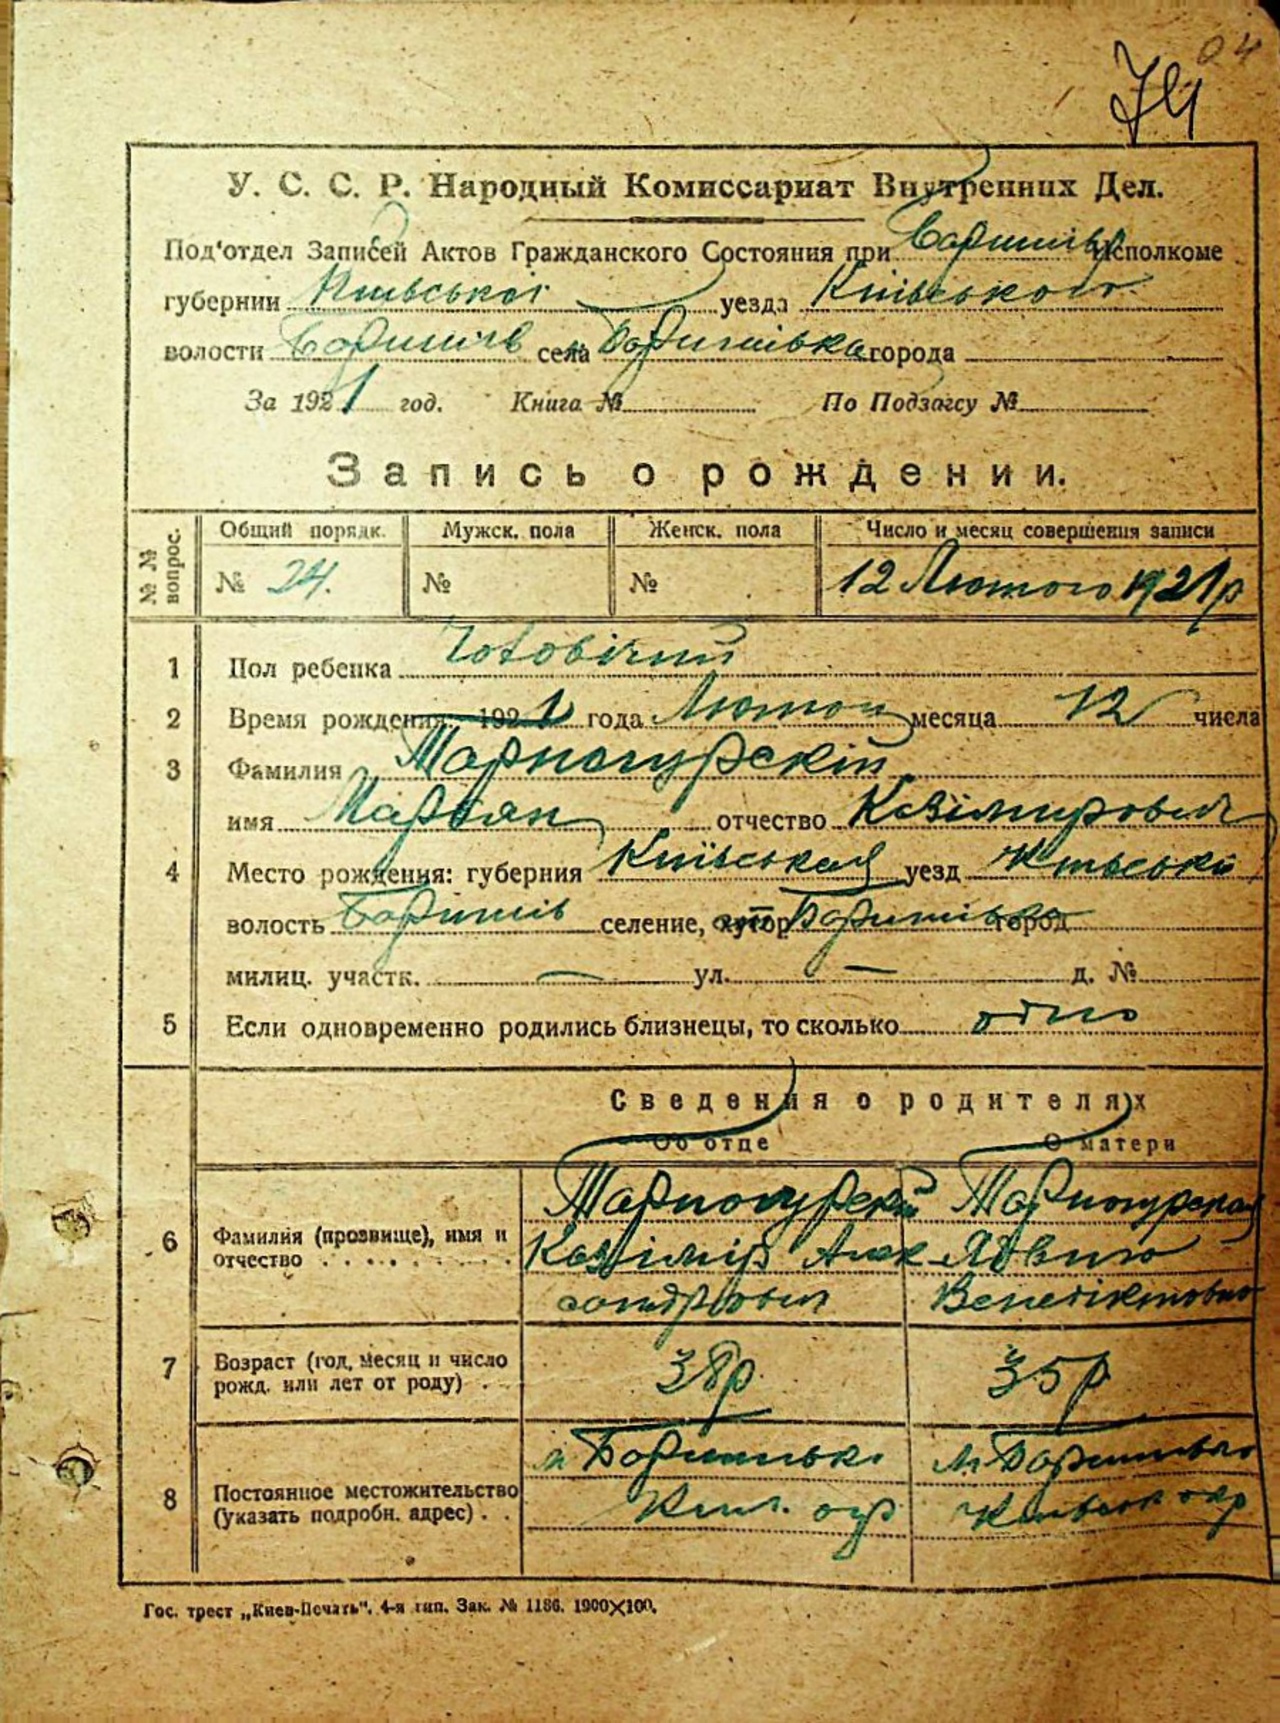 04
74
У. С. С. Р. Народный Комиссариат Внутренних Дел.
Под'отдел Записей Актов Гражданского Состояния при Боришпіль Исполкоме
губернии Київської уезда Київського
волости села города
За 1921 год. Книга № По Подзагсу №
Запись о рождении.
№ № вопрос. Общий порядк. Мужск. пола Женск. пола Число и месяц совершения записи
№ 24. № № 12 Лютого 1921р
1 Пол ребенка Чоловічий
2 Время рождения: 1921 года Лютого месяца 12 числа
3 Фамилия Тарногурскій
имя Марьян отчество Казімирович
4 Место рождения: губерния Київська уезд Київський
волость селение, хутор город
милиц. участк. — ул. — д. №
5 Если одновременно родились близнецы, то сколько одно
Сведения о родителях
Об отце О матери
6 Фамилия (прозвище), имя и отчество Тарногурскій Казімір Александрович Тарногурская Ядвига Венедіктовна
7 Возраст (год, месяц и число рожд. или лет от роду) 38р 35р
8 Постоянное местожительство (указать подробн. адрес) м м окр
Гос. трест „Киев-Печать“. 4-я тип. Зак. № 1186. 1900×100.